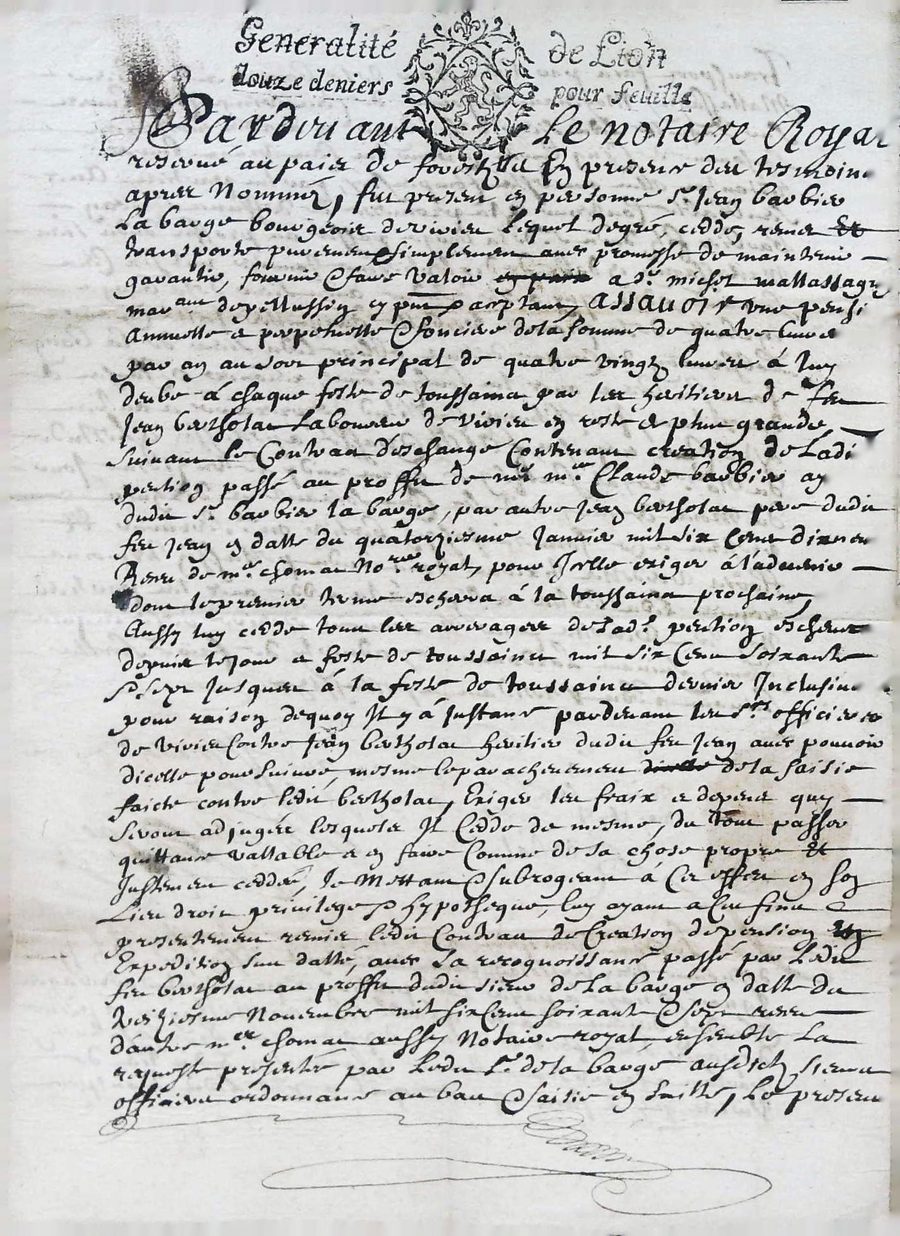 Generalité de Lion
douze deniers pour feuille
Pardevant Le notaire Royal
reservé au paier de forestz en presence des tesmoins
apres Nommés, fut present en personne Sr Jean barbier
La barge bourgeois de virieu lequel de gré, cedde, remet Et
transporte purement & simplement avec promesse de maintenir
garantir, fournir & faire valoir a Sr michel mallassagny
march ant de pellussin cy pnt & acptant, assavoir une pensi
Annuelle et perpetuelle & fonciere de la somme de quatre livres
par an au sort principal de quatre vingtz livres à luy
deube à chaque feste de toussainct par les heritiers de feu
Jean bertholat Laboureur de Virieu en reste de plus grande
suivant le Contract d'eschange Contenant creation de Ladi
pention passé au proffit de Claude barbier
dudit Sr barbier la barge, par autre Jean bertholat pere dudit
feu Jean en datte du quatorziesme Janvier mil six cent
Receu de me chomat Nore royal, pour Icelle exiger à l'advenir
dont le premier terme eschera à la toussainct prochaine
Aussy luy cedde tous les arrerages de Lade pention escheus
depuis le jour et feste de toussainct mil six cent soixante
sept jusques à la feste de toussainct dernier Inclusive
pour raison dequoy Il y à Instance pardevant les Srs officiers
de Virieu Contre Jean bertholat heritier dudit feu Jean avec pouvoir
dicelle poursuivre, mesme le parachevement de la saisie
faicte contre ledit bertholat, Exiger les fraix et depens quy
seront adjugés lesquels Il Cedde de mesme, du tout passer
quittance vallable et en faire Comme de sa chose propre Et
Justement ceddée, le Mettant & subrogeant à Cet effect en son
Lieu droit privilege & hypotheque, luy ayant a Ces fins
presentement remis ledit Contract de Creation de pension
Expedition sur datte, avec La recognoissance passé par Ledit
feu bertholat au proffit dudit sieur de La barge en datte du
Novembre mil six cent soixante & sept receu
d'autre me chomat aussy Notaire royal, ensemble La
requeste presentée par Ledit Sr de la barge ausdictz sieurs
officiers ordonnance au bas & saisie en suitte, Le present